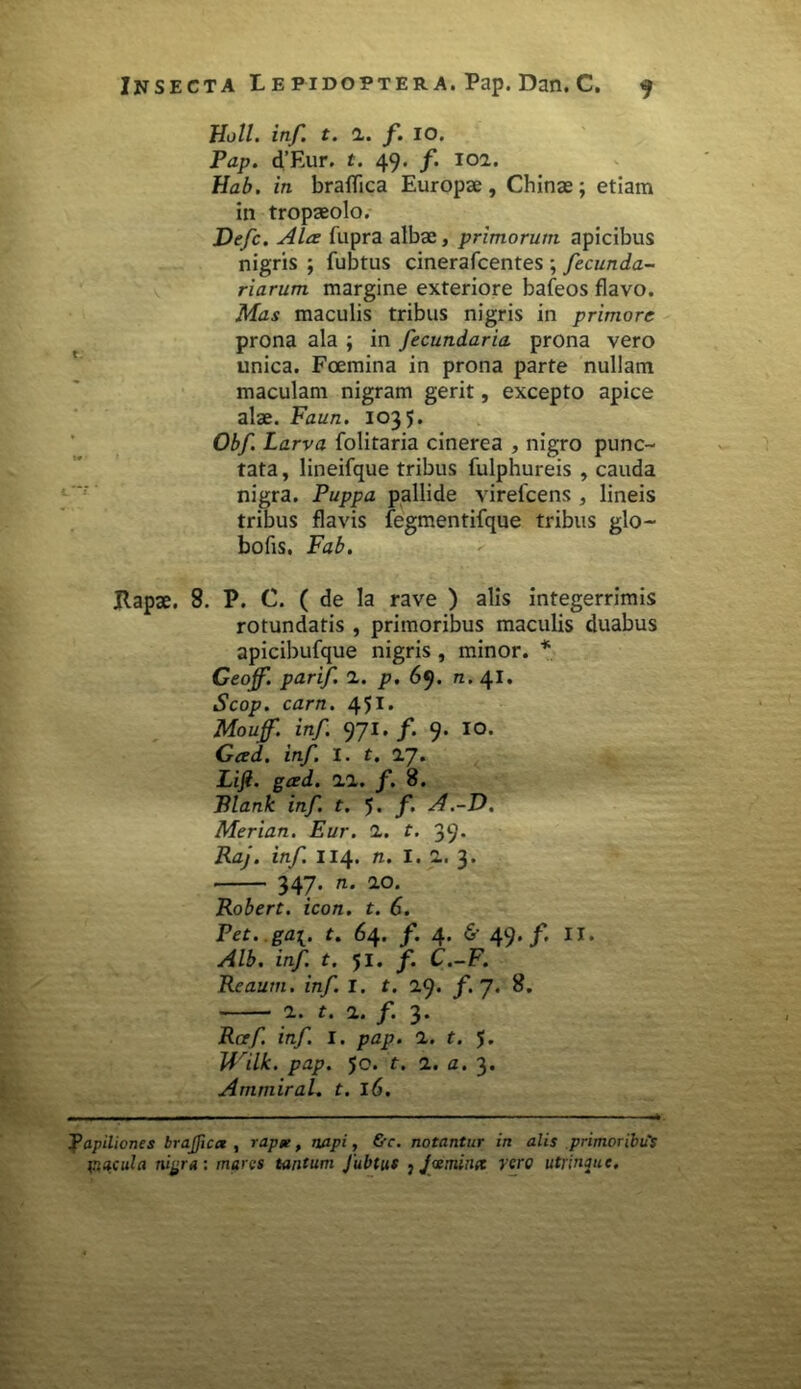 INSECTA LEPIDOPTERA. Pap. Dan. C. 9
Holl. inf. t. 2. f. 10.
Pap. d'Eur. t. 49. f. 102.
Hab. in braſſica Europæ, Chinæ; etiam
in tropæolo.
Deſc. Alæ ſupra albæ, primorum apicibus
nigris ; ſubtus cineraſcentes ; ſecunda-
riarum margine exteriore baſeos flavo.
Mas maculis tribus nigris in primore
prona ala ; in ſecundaria prona vero
unica. Fœmina in prona parte nullam
maculam nigram gerit, excepto apice
alæ. Faun. 1035.
Obſ. Larva ſolitaria cinerea , nigro punc-
tata, lineiſque tribus ſulphureis , cauda
nigra. Puppa pallide vireſcens , lineis
tribus flavis ſegmentiſque tribus glo-
boſis. Fab.
Rapæ. 8. P. C. ( de la rave ) alis integerrimis
rotundatis , primoribus maculis duabus
apicibuſque nigris , minor. *
Geoff. pariſ. 2. p. 69. n. 41.
Scop. carn. 451.
Mouff. inſ. 971. f. 9. 10.
Gæd. inſ. 1. t. 27.
Liſt. gæd. 22. f. 8.
Blank inſ. t. 5. f. A.-D.
Merian. Eur. 2. t. 39.
Raj. inſ. 114. n. 1. 2. 3.
—— 347. n. 20.
Robert. icon. t. 6.
Pet. gaz. t. 64. f. 4. & 49. f. 11.
Alb. inſ. t. 51. f. C.-F.
Reaum. inſ. 1. t. 29. f. 7. 8.
—— 2. t. 2. f. 3.
Rœſ. inſ. 1. pap. 2. t. 5.
Wilk. pap. 50. t. 2. a. 3.
Ammiral. t. 16.
Papiliones braſſicæ , rapæ, napi, &c. notantur in alis primoribus
macula nigra : mares tantum ſubtus , fœminæ vero utrinque.